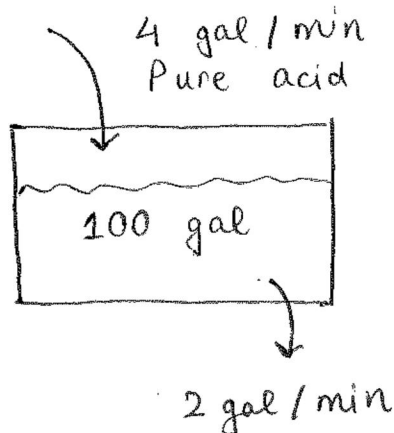 4 gal/min
Pure acid
100 gal
2 gal/min